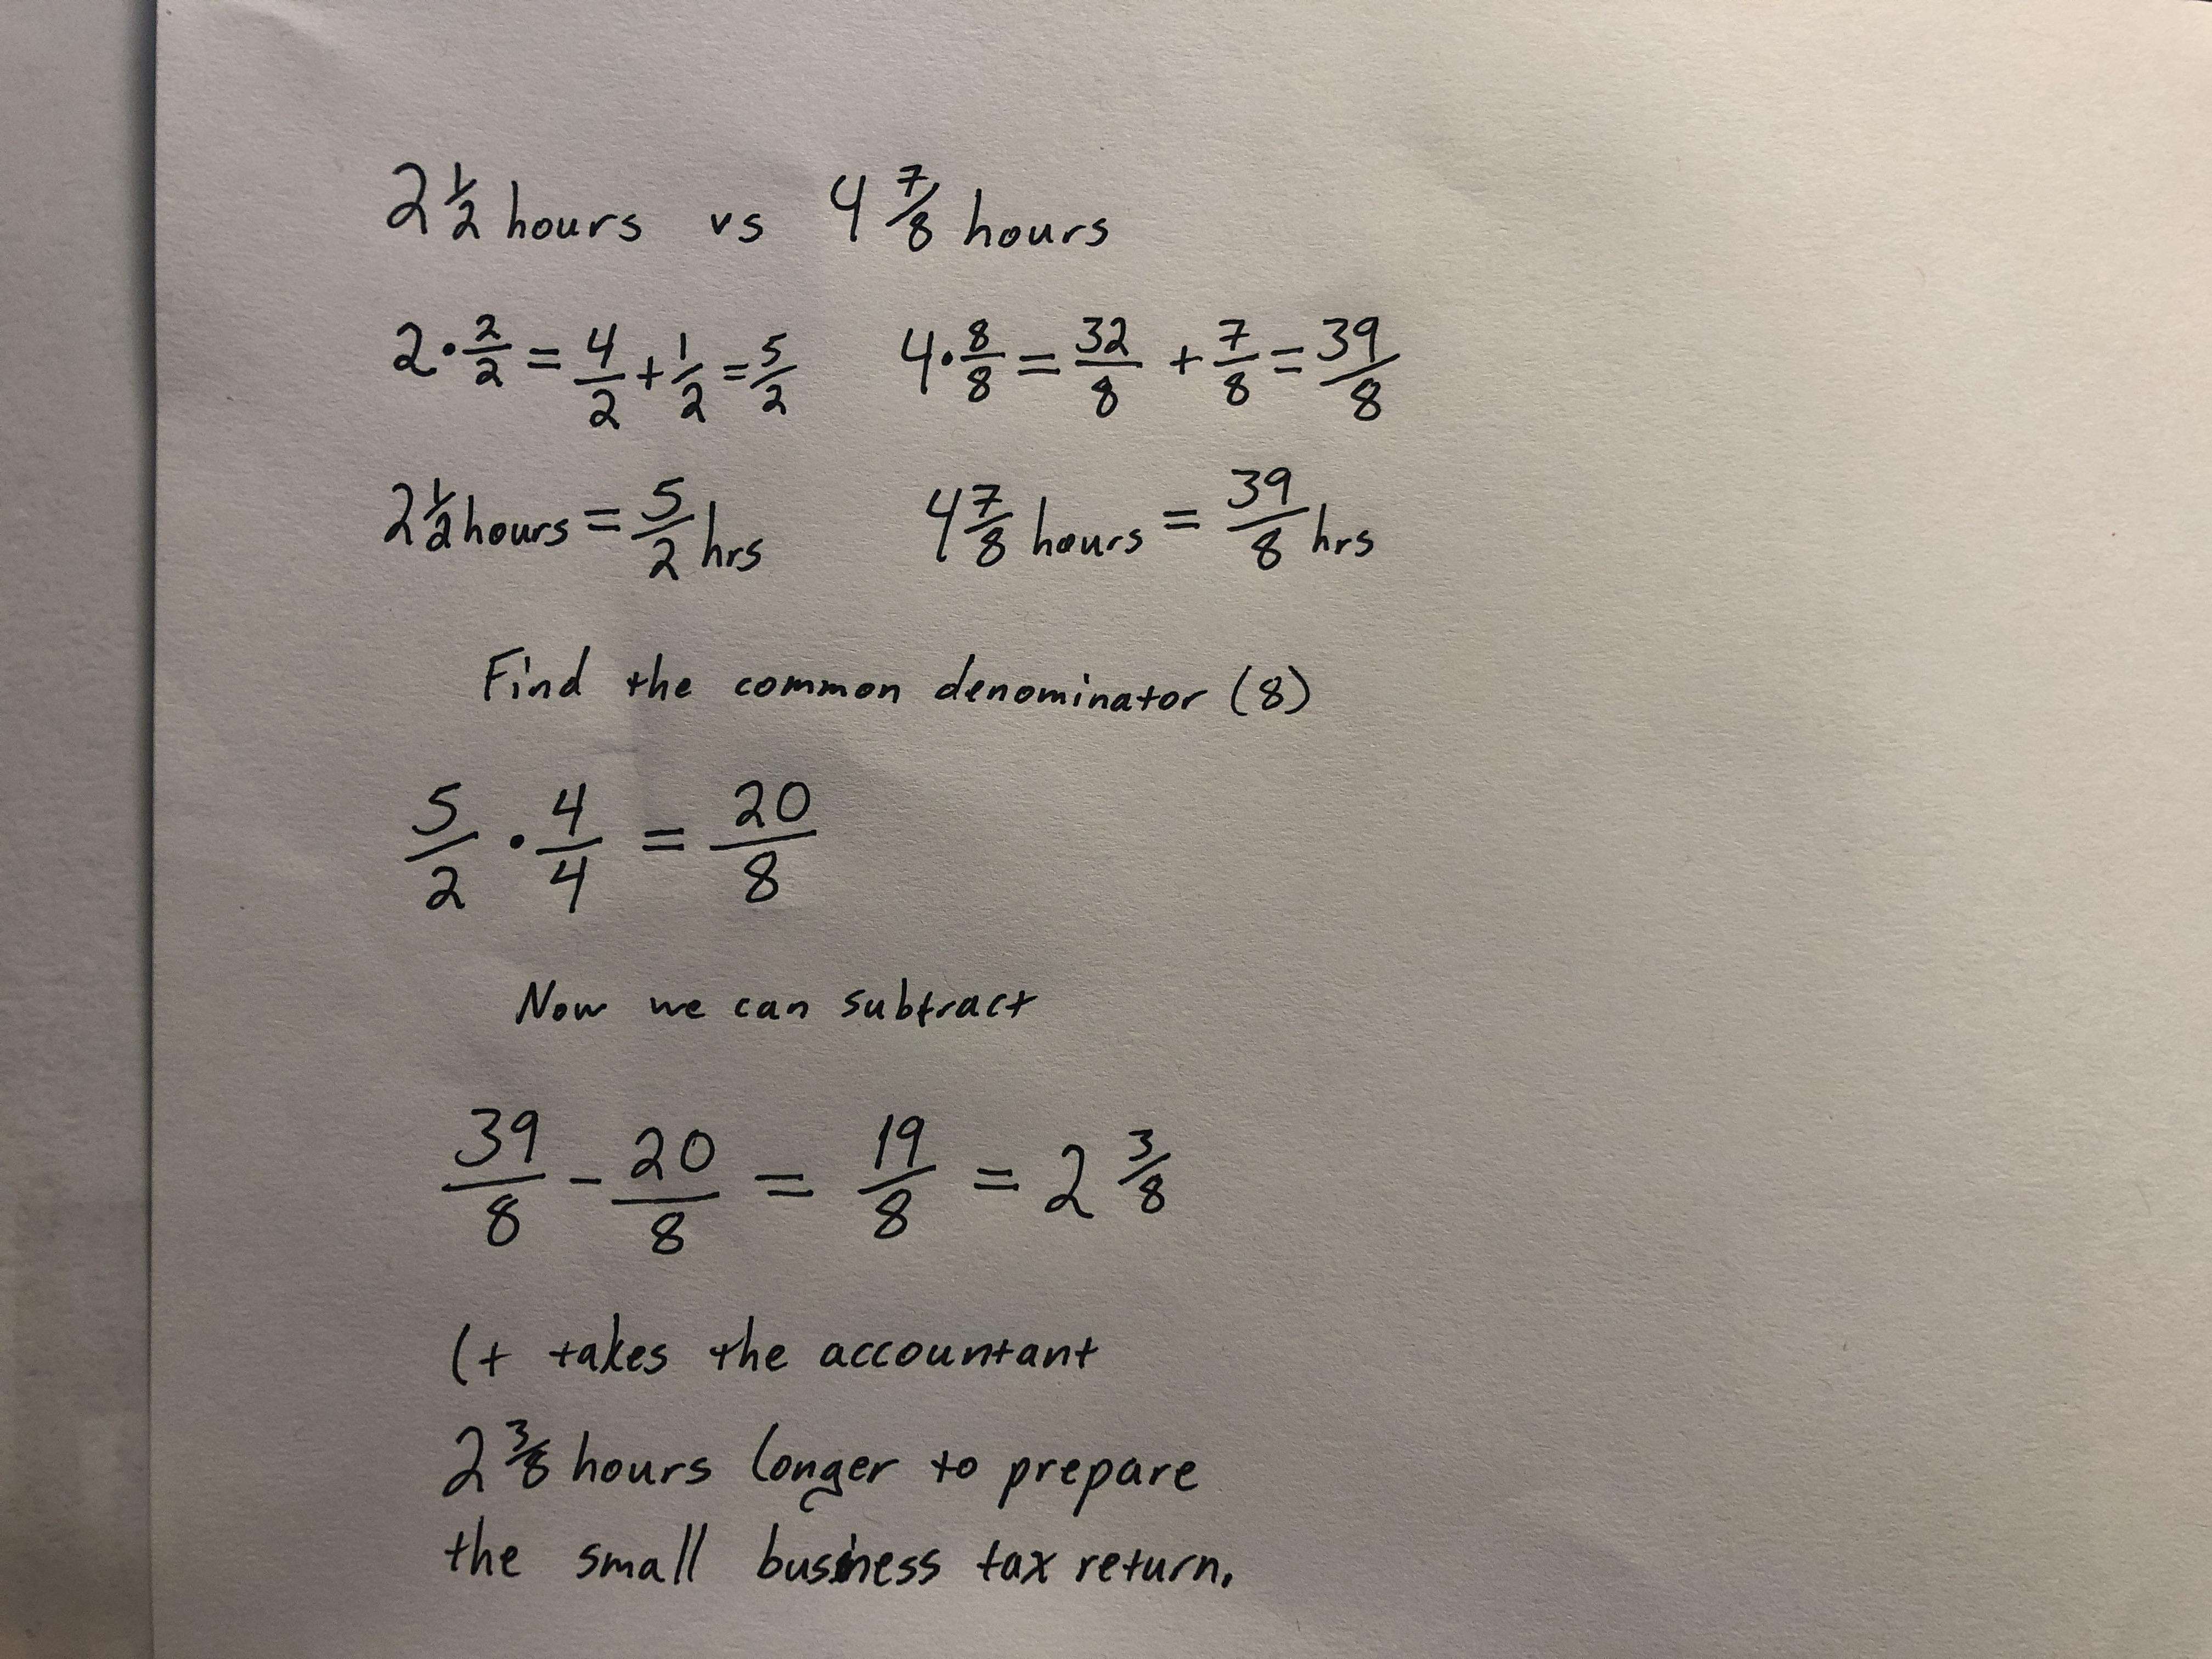 2 1/2 hours vs 4 7/8 hours
2 · 2/2 = 4/2 + 1/2 = 5/2 4 · 8/8 = 32/8 + 7/8 = 39/8
2 1/2 hours = 5/2 hrs 4 7/8 hours = 39/8 hrs
Find the common denominator (8)
5/2 · 4/4 = 20/8
Now we can subtract
39/8 - 20/8 = 19/8 = 2 3/8
It takes the accountant
2 3/8 hours longer to prepare
the small business tax return.